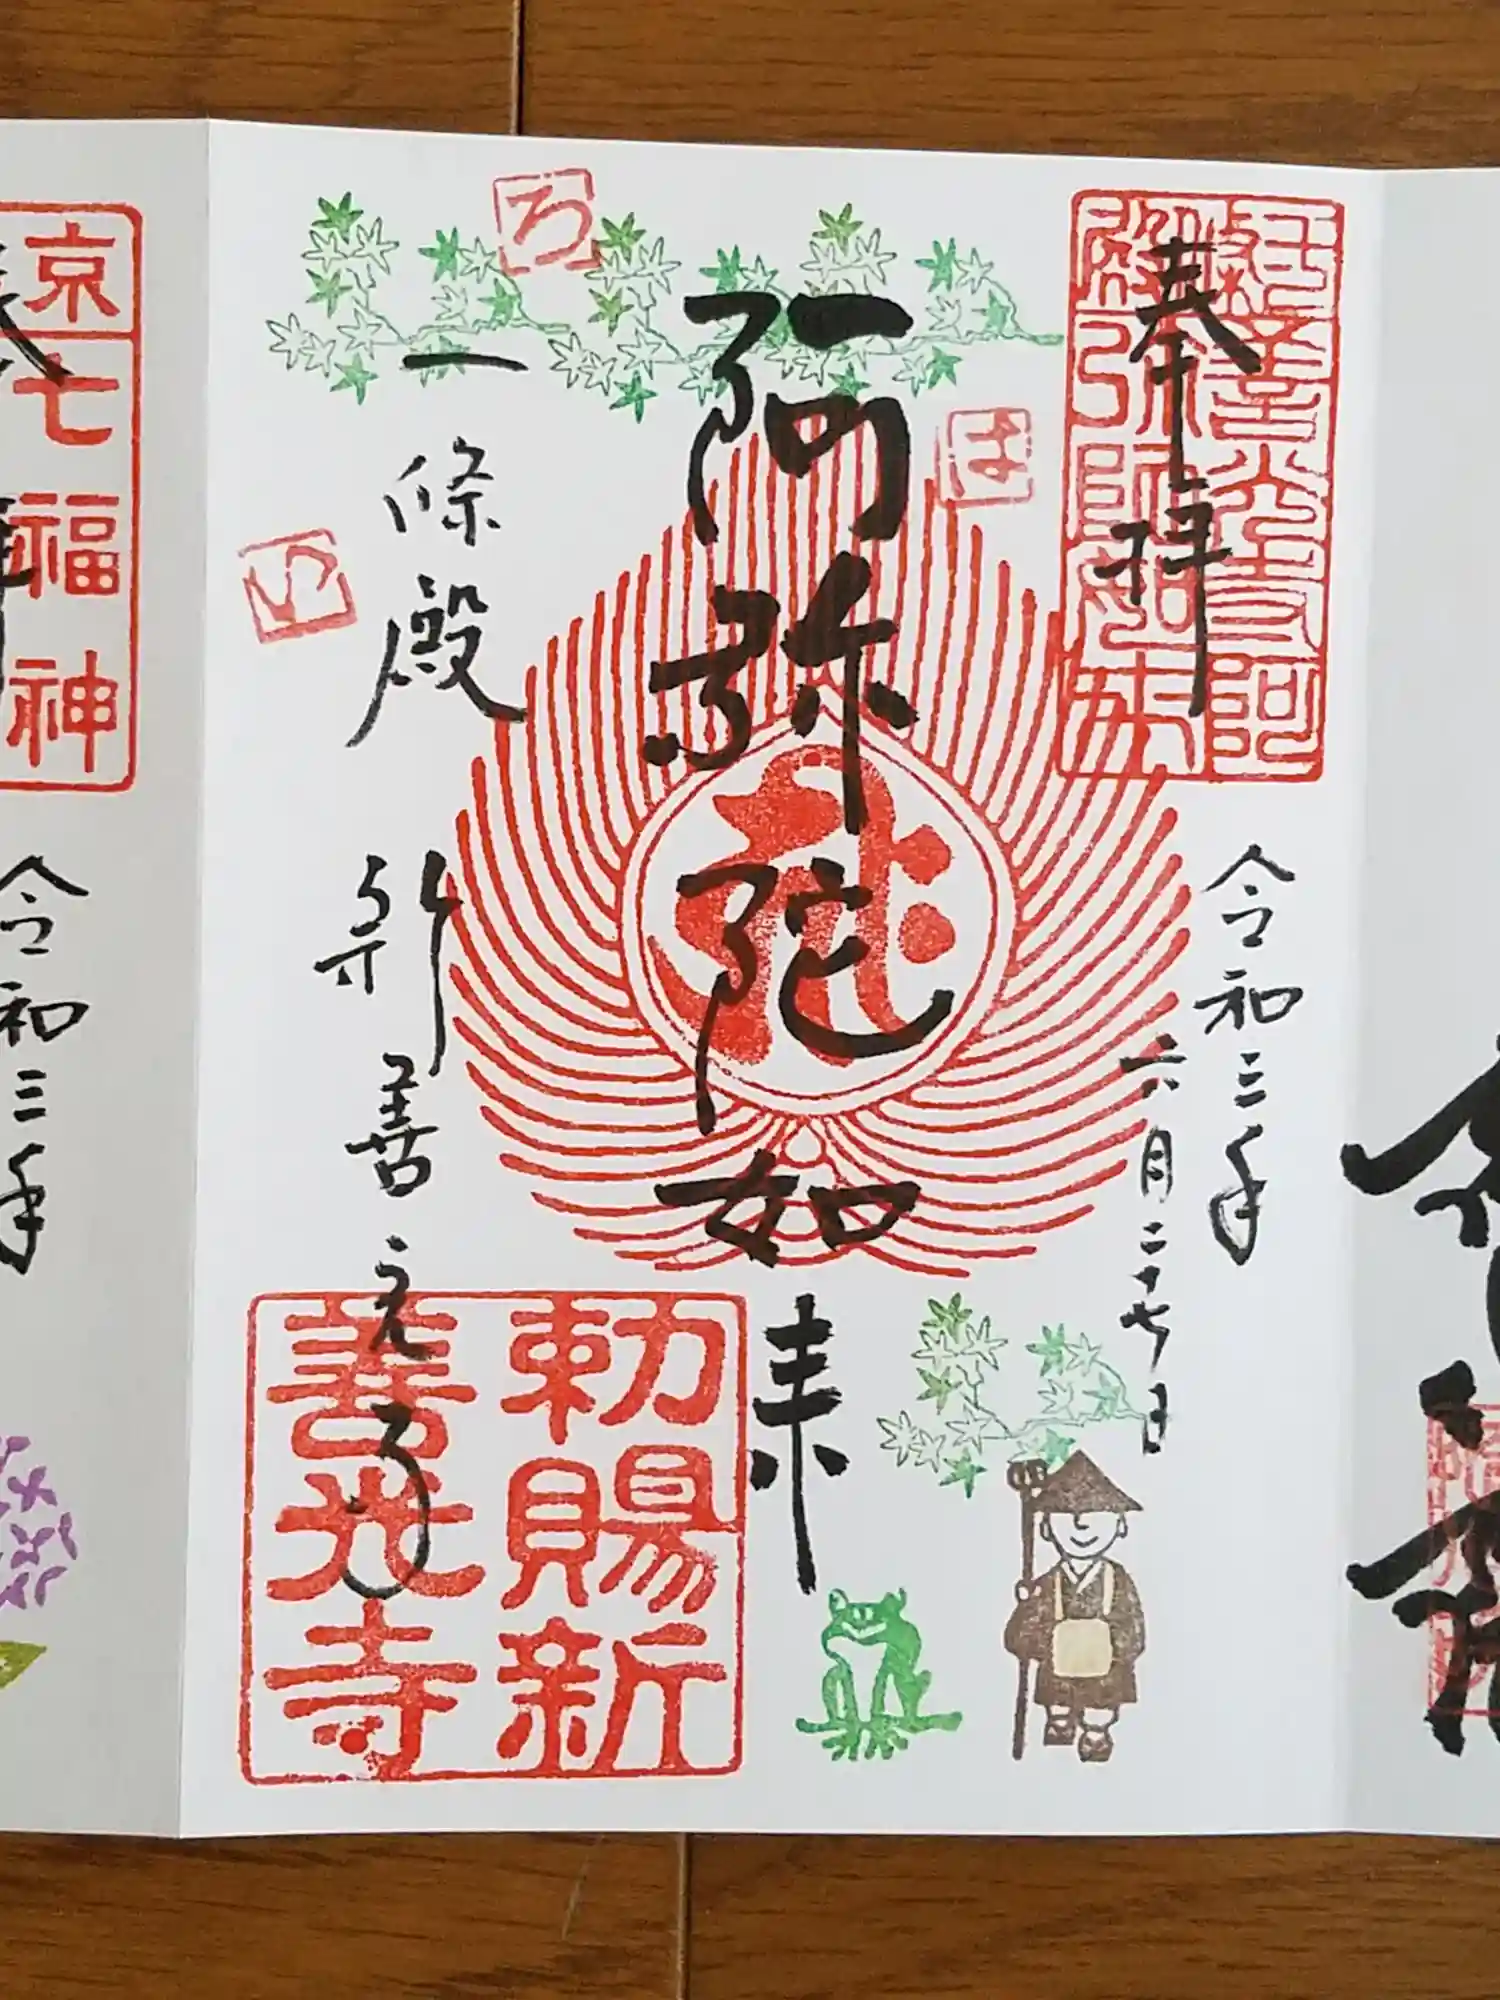 奉拝
令和三年
六月二十七日
阿弥陀如来
一條殿
新善光寺
ろ
は
い
勅賜新
善光寺
善光寺阿
弥陀如来
京七福神
令和三年